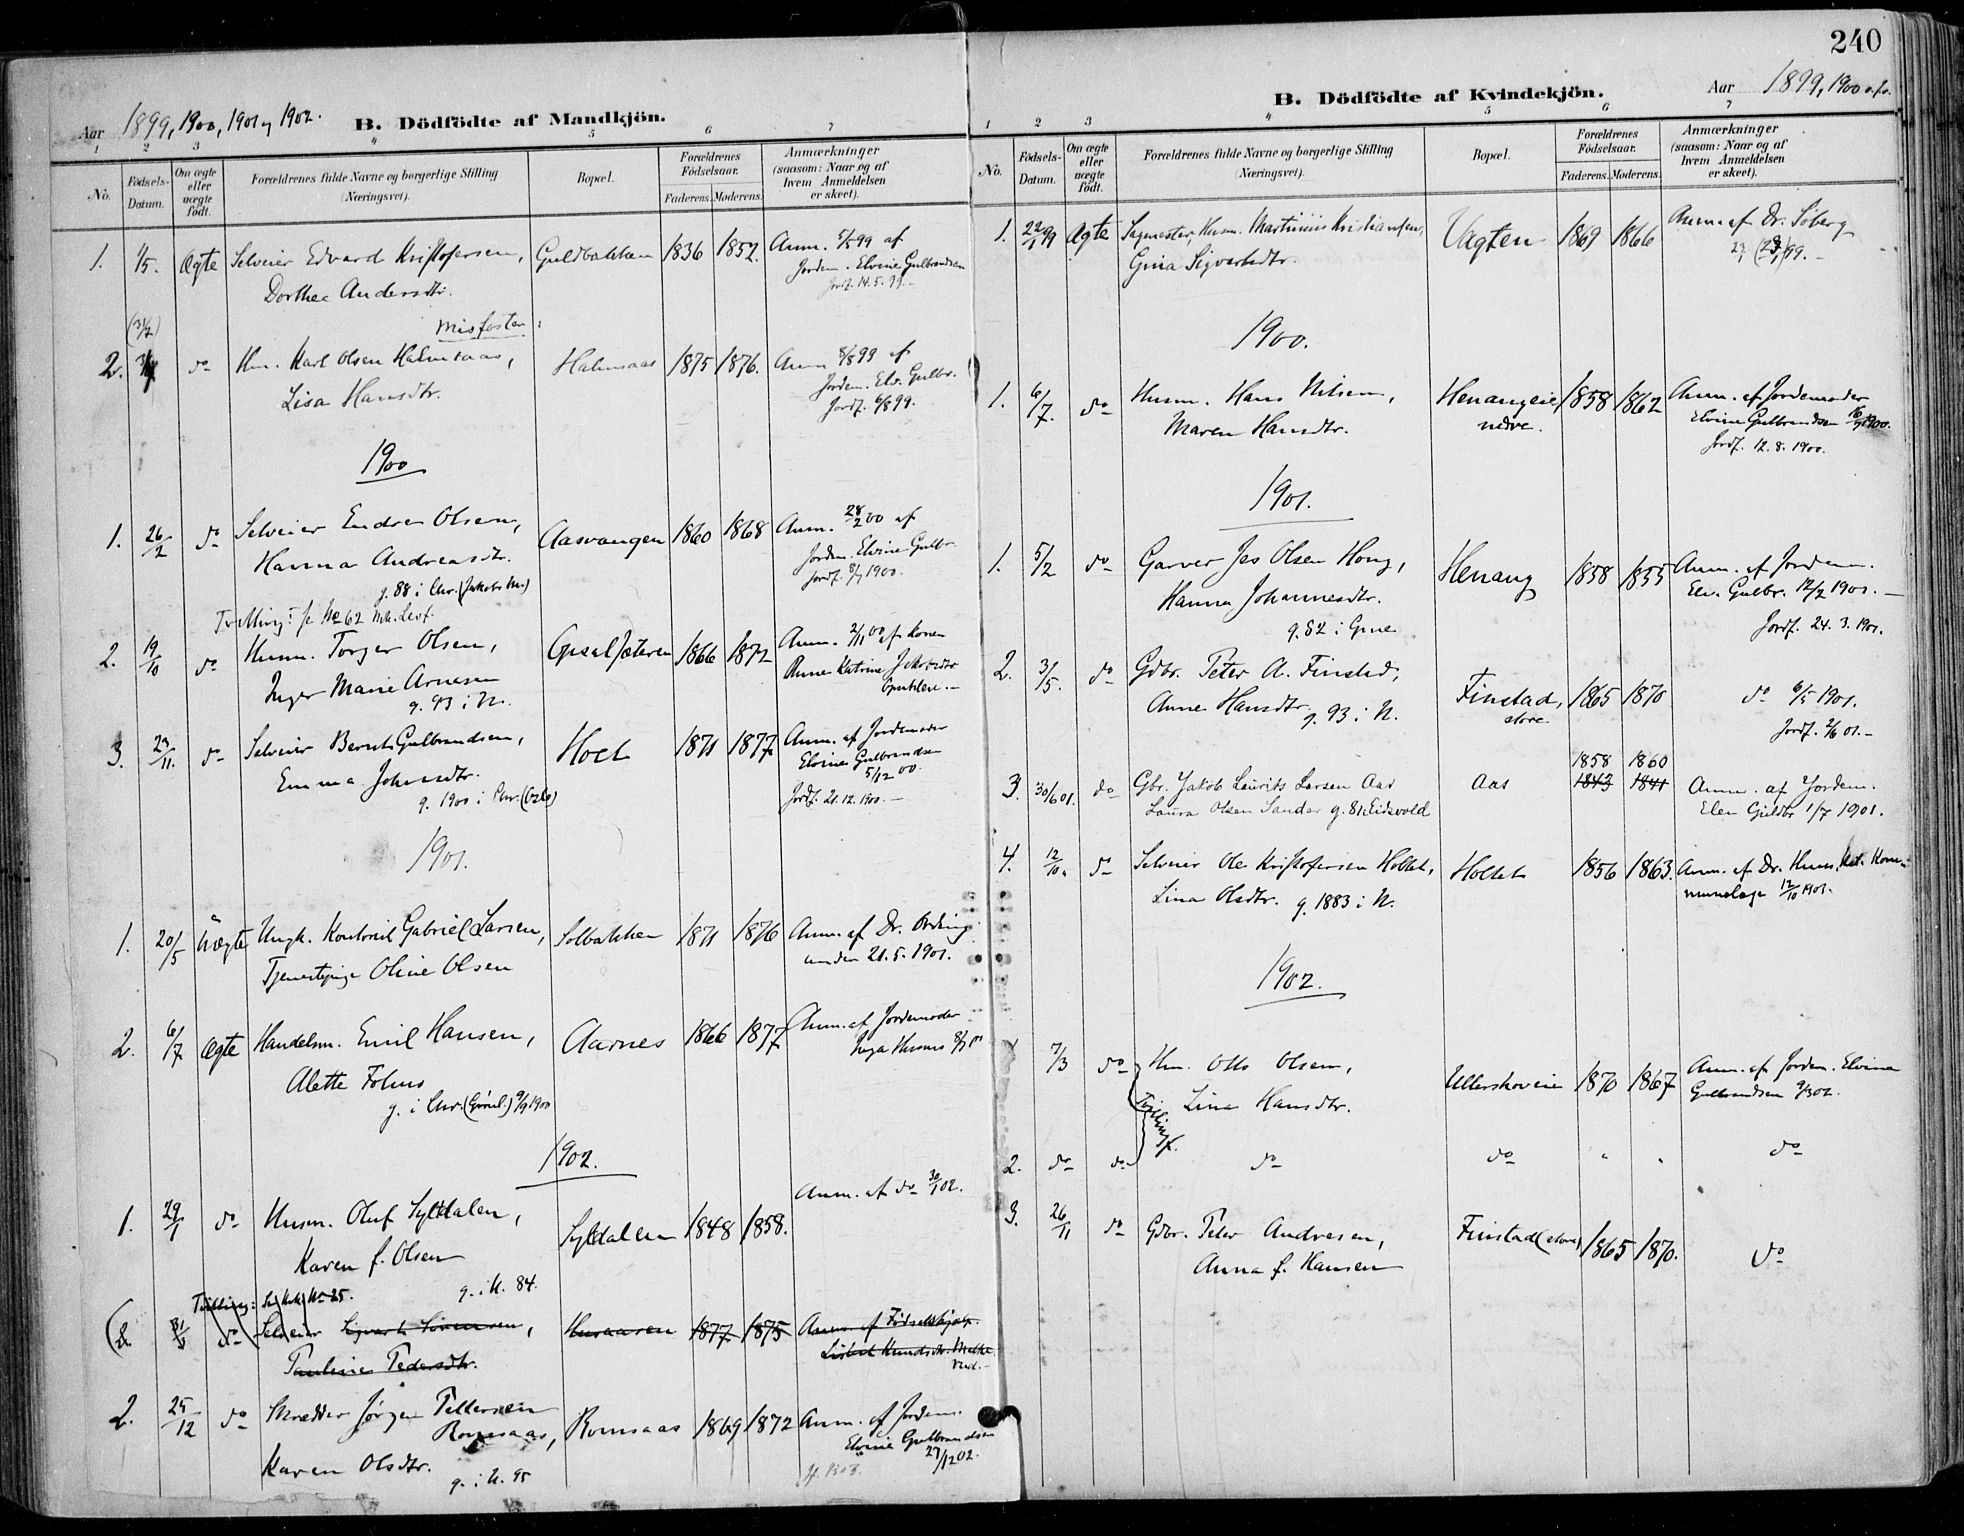 240
Aar 1899, 1900, 1901 og 1902.
B. Dödfödte af Mandkjön.
1 2 3 4 5 6 7
No.
Födsels-Datum.
Om ægte eller uægte födt.
Forældrenes fulde Navne og borgerlige Stilling (Næringsvei).
Bopæl.
Forældrenes Födselsaar.
Faderens. Moderens.
Anmærkninger (saasom: Naar og af hvem Anmeldelsen er skeet).
1. 1/5. Ægte Selveier Edvard Kristofersen, Guldbakken 1836 1852. Anm. 5/5 99 af
Dorthea Andersdtr. Jordm. Elvine Gulbrandsen
Jordf. 14.5.99.
(31/7) Misfoster:
2. do Hm. Karl Olsen Halmsaas, Halmsaas 1875 1876. Anm 8/8 99 af
Lisa Hansdtr. Jordm. Elv. Gulbr.
Jordf. 6/8 99.
1900
1. 26/2 do Selveier Endre Olsen, Aasvangen 1860 1868 Anm. 28/2 00 af
Hanna Andreasdtr. Jordm. Elvine Gulbr.
g. 88 i Chr. (Jakobs M.) Jordf. 8/7 1900.
Tvilling: No 62
2. 19/10 do Husm. Torger Olsen, 1866 1872 Anm. 2/11 00 af Konen
Inger Marie Arnesen Anne Katrine Jakobsdtr
g. 93 i N.
3. 23/11. do Selveier Bernt Gulbrandsen, Holt 1871 1877 Anm. af Jordemoder
Emma Johnsdtr. Elvine Gulbrandsen
5/12 00.
g. 1900 i Chr. (Oslo) Jordf. 21.12.1900.
1901.
1. 20/5 Uægte Ungk. Kontorist Gabriel Larsen, Solbakken 1871 1876 Anm. af Dr. Ording
Tjenestepige Oline Olsen 21.5.1901.
2. 6/7 Ægte Handelsm. Emil Hansen, Aarnes 1866 1877 Anm. af Jordemoder
Alette Folmo
g. i Chr. (Grönl.) 9/9 1900
1902.
1. 29/1 do Husm. Oluf Syltdalen, Syltdalen 1848 1858. Anm. af do 30/1 02.
Karen f. Olsen
g. i N. 84.
Tvilling: No 25.
(2 31/3 do Selveier Sigvart Simensen, Husaasen 1877 1875 Anm. af Födselshjælp.
Pauline Pedersdtr. Lisbet Knudsdtr.
2. 25/12 do Skrædder Jørgen Pettersen Romsaas, Romsaas 1869 1872 Anm. af Jordem.
Karen Olsdtr. Elvine Gulbrandsen
27/12 02.
g. i N. 95
B. Dödfödte af Kvindekjön.
Aar 1899, 1900 o.fv.
1 2 3 4 5 6 7
No.
Födsels-Datum.
Om ægte eller uægte födt.
Forældrenes fulde Navne og borgerlige Stilling (Næringsvei).
Bopæl.
Forældrenes Födselsaar.
Faderens. Moderens.
Anmærkninger (saasom: Naar og af hvem Anmeldelsen er skeet).
1. 22/1 99 Ægte Sagmester, Husm. Martinius Kristiansen, Vagten 1869 1866 Anm. af Dr. Söberg
Gina Sigvartsdtr.
1900.
1. 6/7. do Husm. Hans Nilsen, Henangeie, nedre. 1858 1862 Anm. af Jordemoder
Maren Hansdtr. Elvine Gulbrandsen 1900.
Jordf. 12.8.1900.
1901.
1. 5/2 do Garver Jes Olsen Houg, Henang 1858 1855 Anm. af Jordem.
Hanna Johannesdtr. Elv. Gulbr. 12/2 1901.
g. 82 i Grue Jordf. 24.3.1901.
2. 3/5. do Gdbr. Peter A. Finstad, Finstad, store. 1865 1870 do 6/5 1901.
Anne Hansdtr. g. 93 i N. Jordf. 2/6 01.
1858 1860
3. 30/6 01. do Gbr. Jakob Laurits Larsen Aas Aas 1843 1841 Anm. af Jordem.
Laura Olsen Sander g. 81 i Eidsvold Elen Guldbr 1/7 1901.
4. 12/10. do Selveier Ole Kristofersen Holtet, Holtet 1856 1863. Anm. af Dr. Huus, Kst. Kom-
Lina Olsdtr. g. 1883 i N. munelæge 12/10 1901.
1902.
7/3 do Hm. Otto Olsen, Ullershoveie 1870 1867 Anm. af Jordem. Elvine
Tvilling f. Lina Hansdtr. Gulbrandsen 9/3 02.
2. do do do do " " do
3. 26/11 do Gdbr. Peter Andresen, Finstad (store) 1865 1870. do
Anna f. Hansen